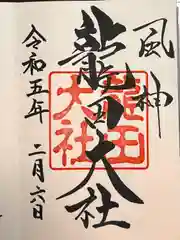 風神
龍田大社
龍田
大社
令和五年
二月六日